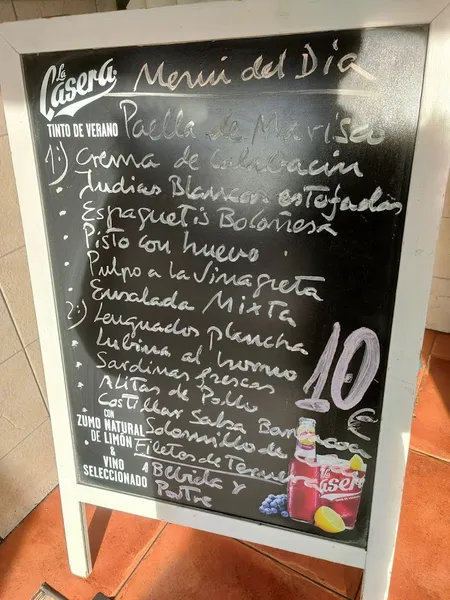 La Casera
Menú del Día
TINTO DE VERANO
Paella de Marisco
1:) Crema de Calabacín
· Judias Blancas estofadas
· Espaguetis Boloñesa
· Pisto con huevo
· Pulpo a la Vinagreta
· Ensalada Mixta
2:) Lenguados plancha
· Lubina al horno
· Sardinas frescas
· Alitas de Pollo
Costillar Salsa Barbacoa
Solomillo de
Filetes de Ternera
1 Bebida y
Postre
10 €
CON
ZUMO NATURAL
DE LIMÓN
&
VINO
SELECCIONADO
La Casera